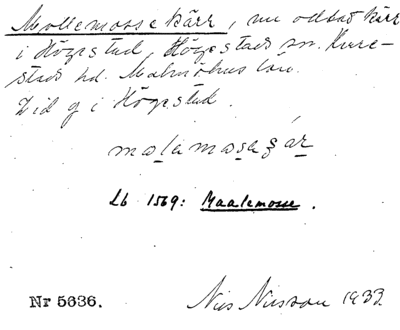 Mollemosse kärr, nu odlad kärr
i Högestad, Högestads sn. Herre-
stads hd. Malmöhus län.
Lid g i Högestad.
malamosasár
Lb 1569: Maalemosse.
Nr 5636. Nils Nilsson 1933